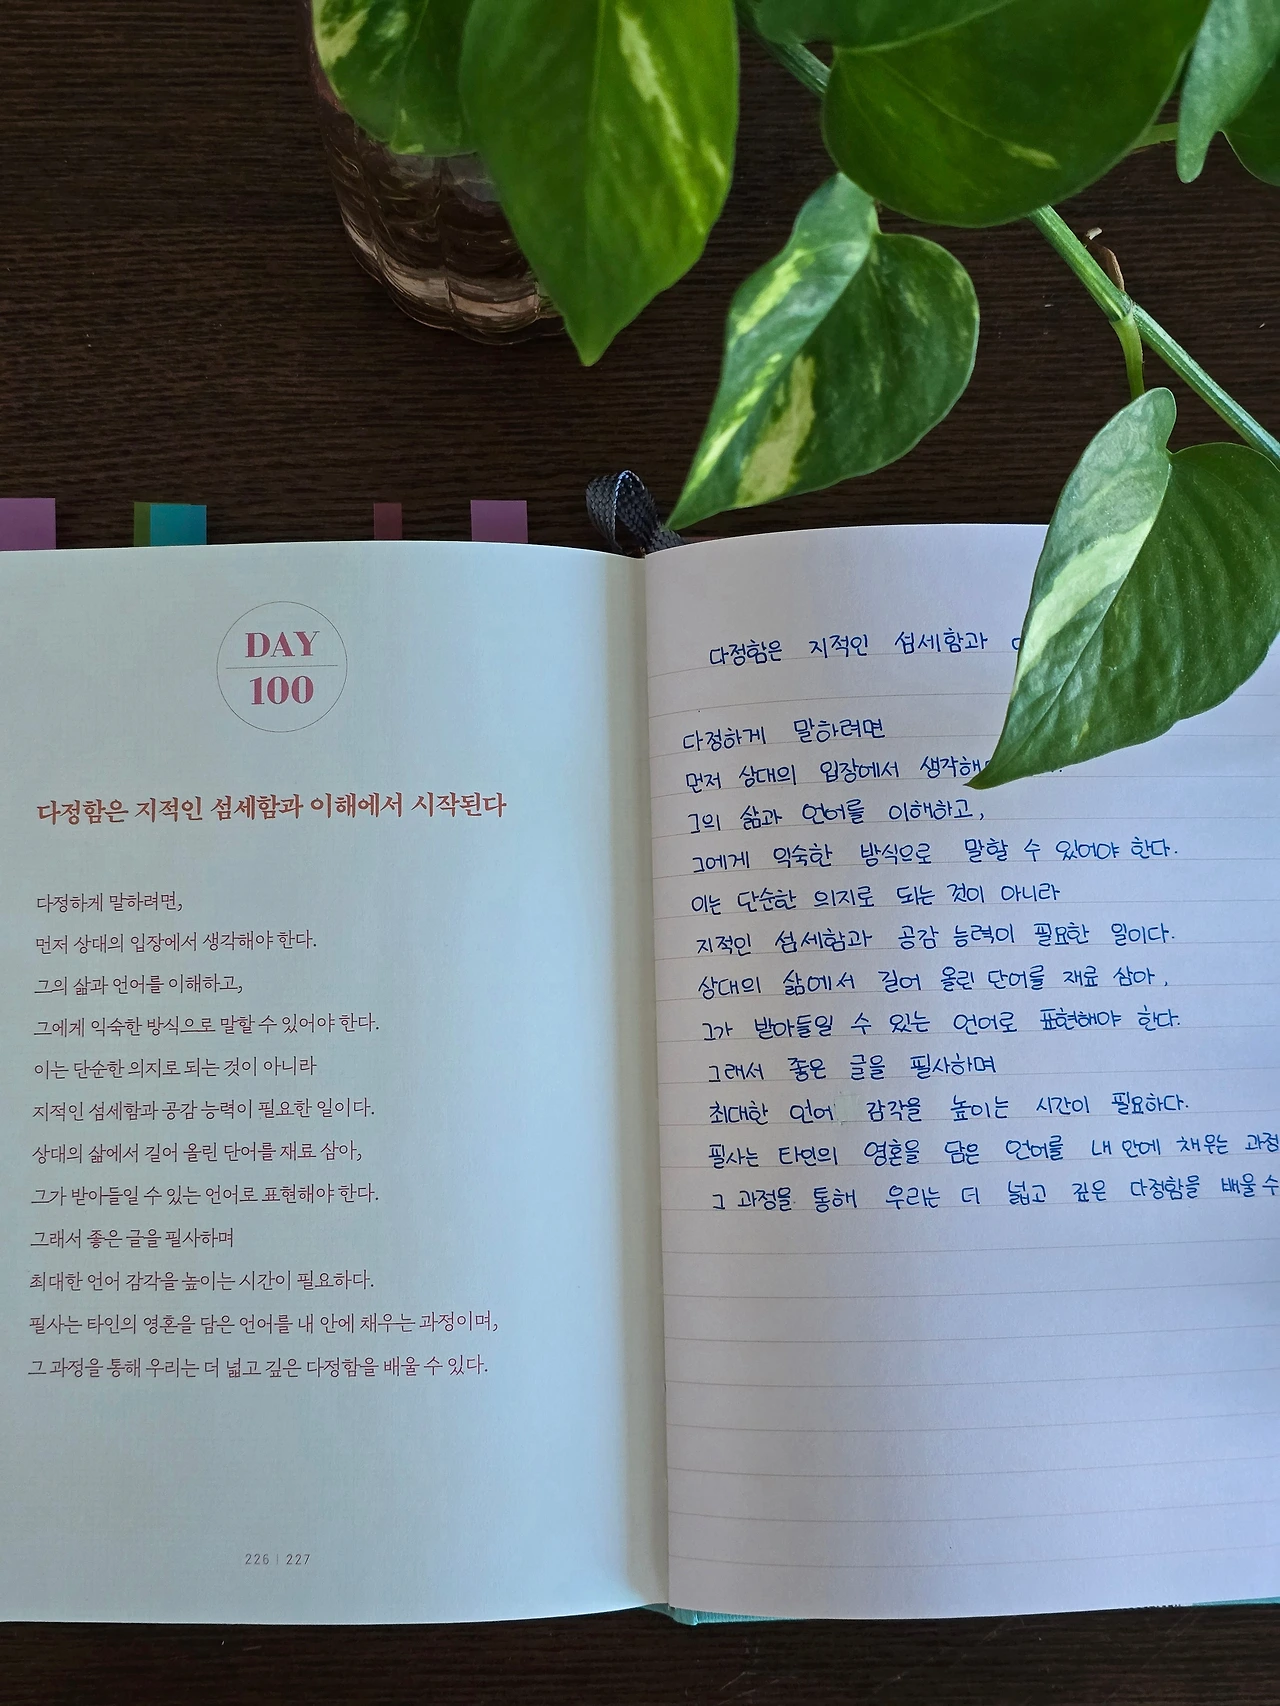 DAY
100
다정함은 지적인 섬세함과 이해에서 시작된다
다정하게 말하려면,
먼저 상대의 입장에서 생각해야 한다.
그의 삶과 언어를 이해하고,
그에게 익숙한 방식으로 말할 수 있어야 한다.
이는 단순한 의지로 되는 것이 아니라
지적인 섬세함과 공감 능력이 필요한 일이다.
상대의 삶에서 길어 올린 단어를 재료 삼아,
그가 받아들일 수 있는 언어로 표현해야 한다.
그래서 좋은 글을 필사하며
최대한 언어 감각을 높이는 시간이 필요하다.
필사는 타인의 영혼을 담은 언어를 내 안에 채우는 과정이며,
그 과정을 통해 우리는 더 넓고 깊은 다정함을 배울 수 있다.
226 | 227
다정함은 지적인 섬세함과
다정하게 말하려면
먼저 상대의 입장에서 생각해
그의 삶과 언어를 이해하고,
그에게 익숙한 방식으로 말할 수 있어야 한다.
이는 단순한 의지로 되는 것이 아니라
지적인 섬세함과 공감 능력이 필요한 일이다.
상대의 삶에서 길어 올린 단어를 재료 삼아,
그가 받아들일 수 있는 언어로 표현해야 한다.
그래서 좋은 글을 필사하며
최대한 언어 감각을 높이는 시간이 필요하다.
필사는 타인의 영혼을 담은 언어를 내 안에 채우는 과정
그 과정을 통해 우리는 더 넓고 깊은 다정함을 배울 수